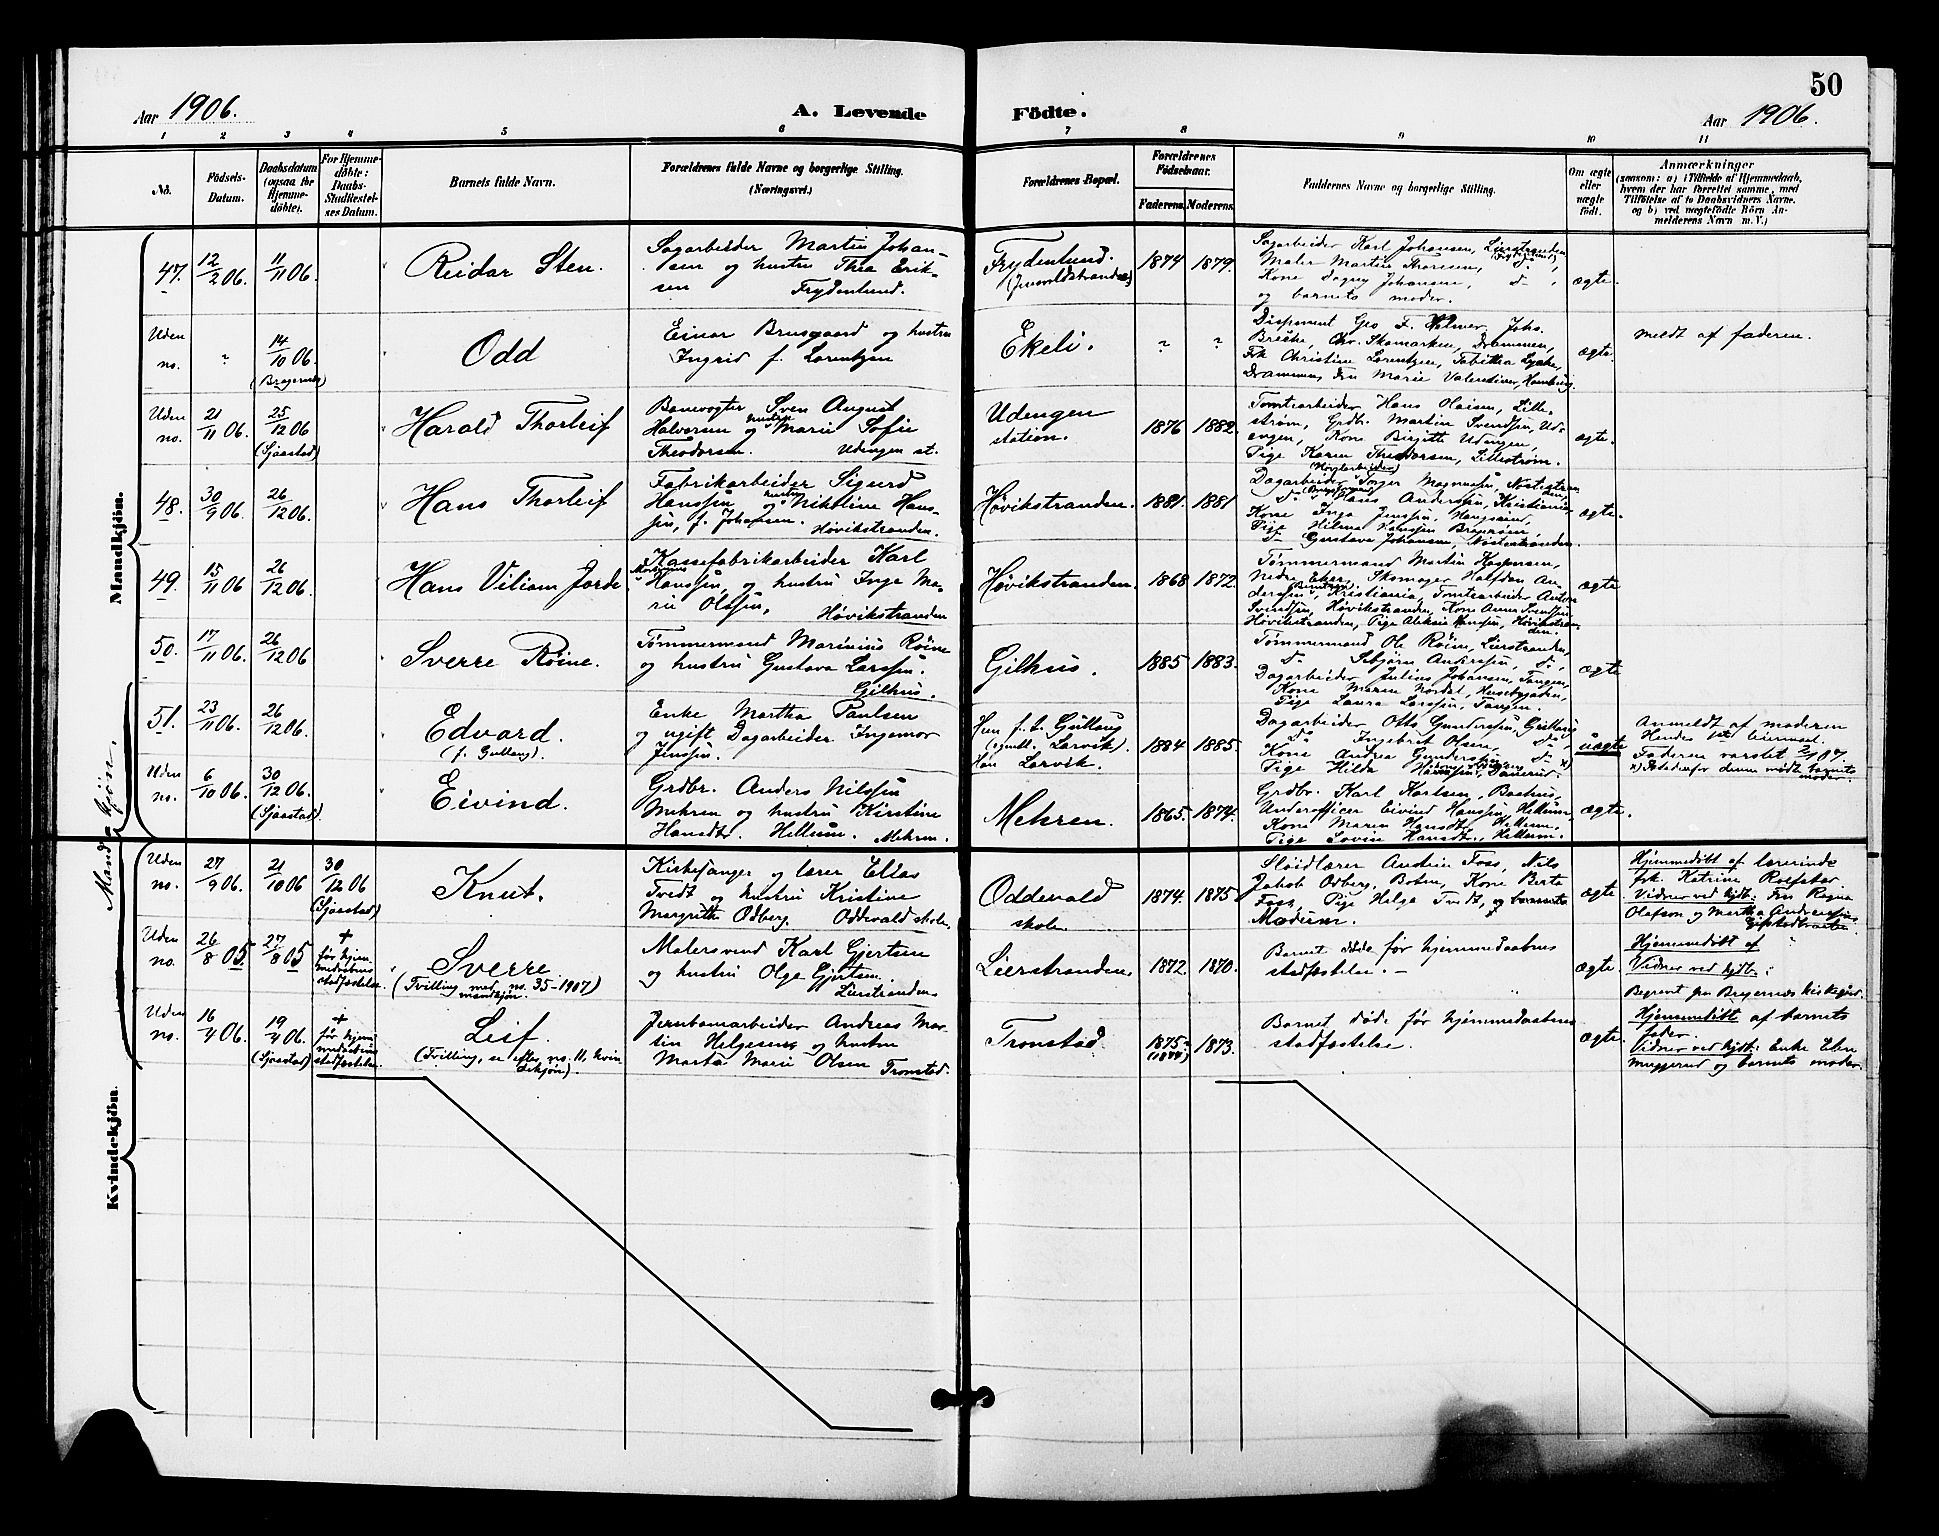 50
Aar 1906.
A. Levende
Födte.
Aar 1906.
1 2 3 4 5 6 7 8 9 10 11
No.
Födsels-
Datum.
Daabsdatum
(ogsaa for
Hjemme-
döbte).
For Hjemme-
döbte:
Daabs-
Stadfæstel-
ses Datum.
Barnets fulde Navn.
Forældrenes fulde Navne og borgerlige Stilling.
(Næringsvei.)
Forældrenes Bopæl.
Forældrenes
Födselsaar.
Faderens. Moderens.
Faddernes Navne og borgerlige Stilling.
Om ægte
eller
uægte
födt.
Anmærkninger
(saasom: a) i Tilfælde af Hjemmedaab,
hvem der har forrettet samme, med
Tilföielse af to Daabsvidners Navne,
og b) ved uægtefödte Börn An-
melderens Navn m. V.)
Mandkjön.
47.
12/2 06.
11/11 06.
Reidar Sten.
Sagarbeider Martin Johan-
sen og hustru Thea Erik-
sen Frydenlund.
Frydenlund.
1874 1879.
Sagarbeider Karl Johansen, Lierstranden
Maler Martin Thoresen,
Kone Dagny Johansen, do
og barnets moder.
ægte.
Uden
no.
"
14/10 06.
(Bragernes)
Odd
Einar Brusgaard og hustru
Ingrid f. Lorentzen
Ekeli.
" "
Disponent Geo F. Joh.
Chr. Skomarken, Drammen,
Frk Christine Lorentzen, Tabitha Lyche,
Drammen, Fru Marie Valentiner, Hamburg.
ægte.
meldt af faderen.
Uden
no.
21/11 06.
25/12 06
(Sjaastad)
Harald Thorleif
Banevogter Sven August
Halvorsen og hustru Marie Sofie
Theodorsen. Udengen st.
Udengen
station.
1876 1882.
Tomtearbeider Hans Olaisen, Lille-
strøm, Grdbr. Martin Svendsen, Ud-
engen, Kone Birgitte Udengen,
Pige Karen Theodorsen, Lillestrøm.
ægte.
48.
30/9 06.
26/12 06
Hans Thorleif
Fabrikarbeider Sigurd
Hanssen og hustru Nikoline Hans-
sen, f. Johansen. Høvikstranden.
Høvikstranden.
1881. 1881
Dagarbeider Inger Magnussen,
do Hans Anderssen, Kristiania
Kone Inga Jenssen, Haugsund,
Pige Hilma Hanssen Bragerøen,
do Gustava Johansen, Nøstestranden.
ægte.
49.
15/11 06
26/12 06.
Hans Viliam Jorde
Kassefabrikarbeider Karl
Hanssen, og hustru Inga Ma-
rie Olssen, Høvikstranden
Høvikstranden.
1868 1872.
Tømmermand Martin Kaspersen,
Nedre Eker, Skomager Halfdan An-
derssen, Kristiania, Tomtearbeider Anton
Svendsen, Høvikstranden, Kone Anna Svendsen
Høvikstranden, Pige Aleksia Hanssen, Høvikstran-
den.
ægte
50.
17/11 06.
26/12 06
Sverre Røine.
Tømmermand Marinius Røine
og hustru Gustava Larssen.
Gilhus.
Gilhus.
1885 1883.
Tømmermand Ole Røine, Lierstranden,
do Sebjørn Anderssen, do,
Dagarbeider Julius Johansen, Tangen,
Kone Maren Nordal, Husebygaden,
Pige Laura Larssen, Tangen.
ægte
51.
23/11 06.
26/12 06.
Edvard.
(f. Gullang).
Enke Martha Paulsen
og ugift Dagarbeider Ingemar
Jenssen.
Hun f. t. Gullaug
Larvik).
Han Larvik.
1884 1885.
Dagarbeider Otto Gunderssen, Gullaug
do Ingebret Olsen, do,
Kone Andrea Gunderssen, do x)
Pige Hilda Hanssen, Danerud.
uægte
Anmeldt af moderen
Hendes 1ste leiermaal.
Faderen varslet 2/1 07.
x) Istedenfor denne mødte barnets
moder.
Uden
no.
6/10 06.
30/12 06.
(Sjaastad)
Eivind.
Grdbr. Anders Nilssen
Mehren og hustru Kirstine
Hansdt. Hellum. Mehren.
Mehren.
1865. 1874.
Grdbr. Karl Karlsen,
Underofficer Eivind Hanssen, Hellum,
Kone Maren Hansdt, Hellum,
Pige Lovise Hansdt., Hellum.
ægte.
Mandkjön.
Uden
no.
27/9 06.
21/10 06
30/12 06
(Sjaastad)
Knut.
Kirkesanger og lærer Ellas
Tvedt og hustru Kristine
Margrethe Odberg. Oddevald skole.
Oddevald
skole.
1874. 1875.
Sløidlærer Andrin Foss, Nils
Jakob Odberg, Botne, Kone Berta
Foss, Pige Helga Tvedt, og barnets
Moder.
ægte
Hjemmedøbt af lærerinde
frk. Katrine Rolfstad
Vidner ved hjdb: Fru Ragna
Olafson og Martha Andreassen
Uden
no.
26/8 05.
27/8 05
†
før hjem-
medaabens
stadfæstelse.
Sverre
(Tvilling med no. 35 - 1907)
mandkjøn.
Malersvend Karl Gjertsen
og hustru Olga Gjertsen.
Lierstranden
Lierstranden.
1872. 1870.
Barnet døde før hjemmedaabens
stadfæstelse. —
ægte
Hjemmedøbt af "
Vidner ved hjdb:
Begravet fra Bragernes kirkegård.
Uden
no.
16/4 06.
19/4 06.
(Sjaastad)
†
før hjem-
medaabens
stadfæstelse.
Leif.
(Tvilling, se efter no. 11, kvin-
dekjøn).
Jernbanearbeider Andreas Mar-
tin Helgesen og hustru
Marta Marie Olsen Tronstad.
Tronstad.
1875
(1844)
1873.
Barnet døde før hjemmedaabens
stadfæstelse.
ægte.
Hjemmedøbt af barnets
fader.
Vidner ved hjdb: Enke Elen
Muggerud og barnets moder.
Kvindekjön.